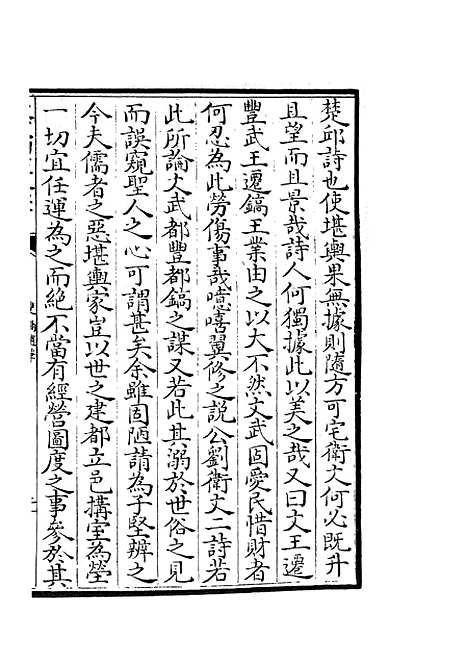 楚邱詩也使堪輿果無據則隨方可宅衛文何必既升
且望而且景哉詩人何獨據此以美之哉又曰文王遷
豐武王遷鎬王業由之以大不然文武固愛民惜財者
何忍為此勞傷事哉噫嘻翼修之説公劉衛文二詩若
此所論文武都豐都鎬之謀又若此其溺於世俗之見
而誤窺聖人之心可謂甚矣余雖固陋請為子堅辨之
今夫儒者之惡堪輿家豈以世之建都立邑搆室為塋
一切宜任運為之而絶不當有經營圖度之事參於其